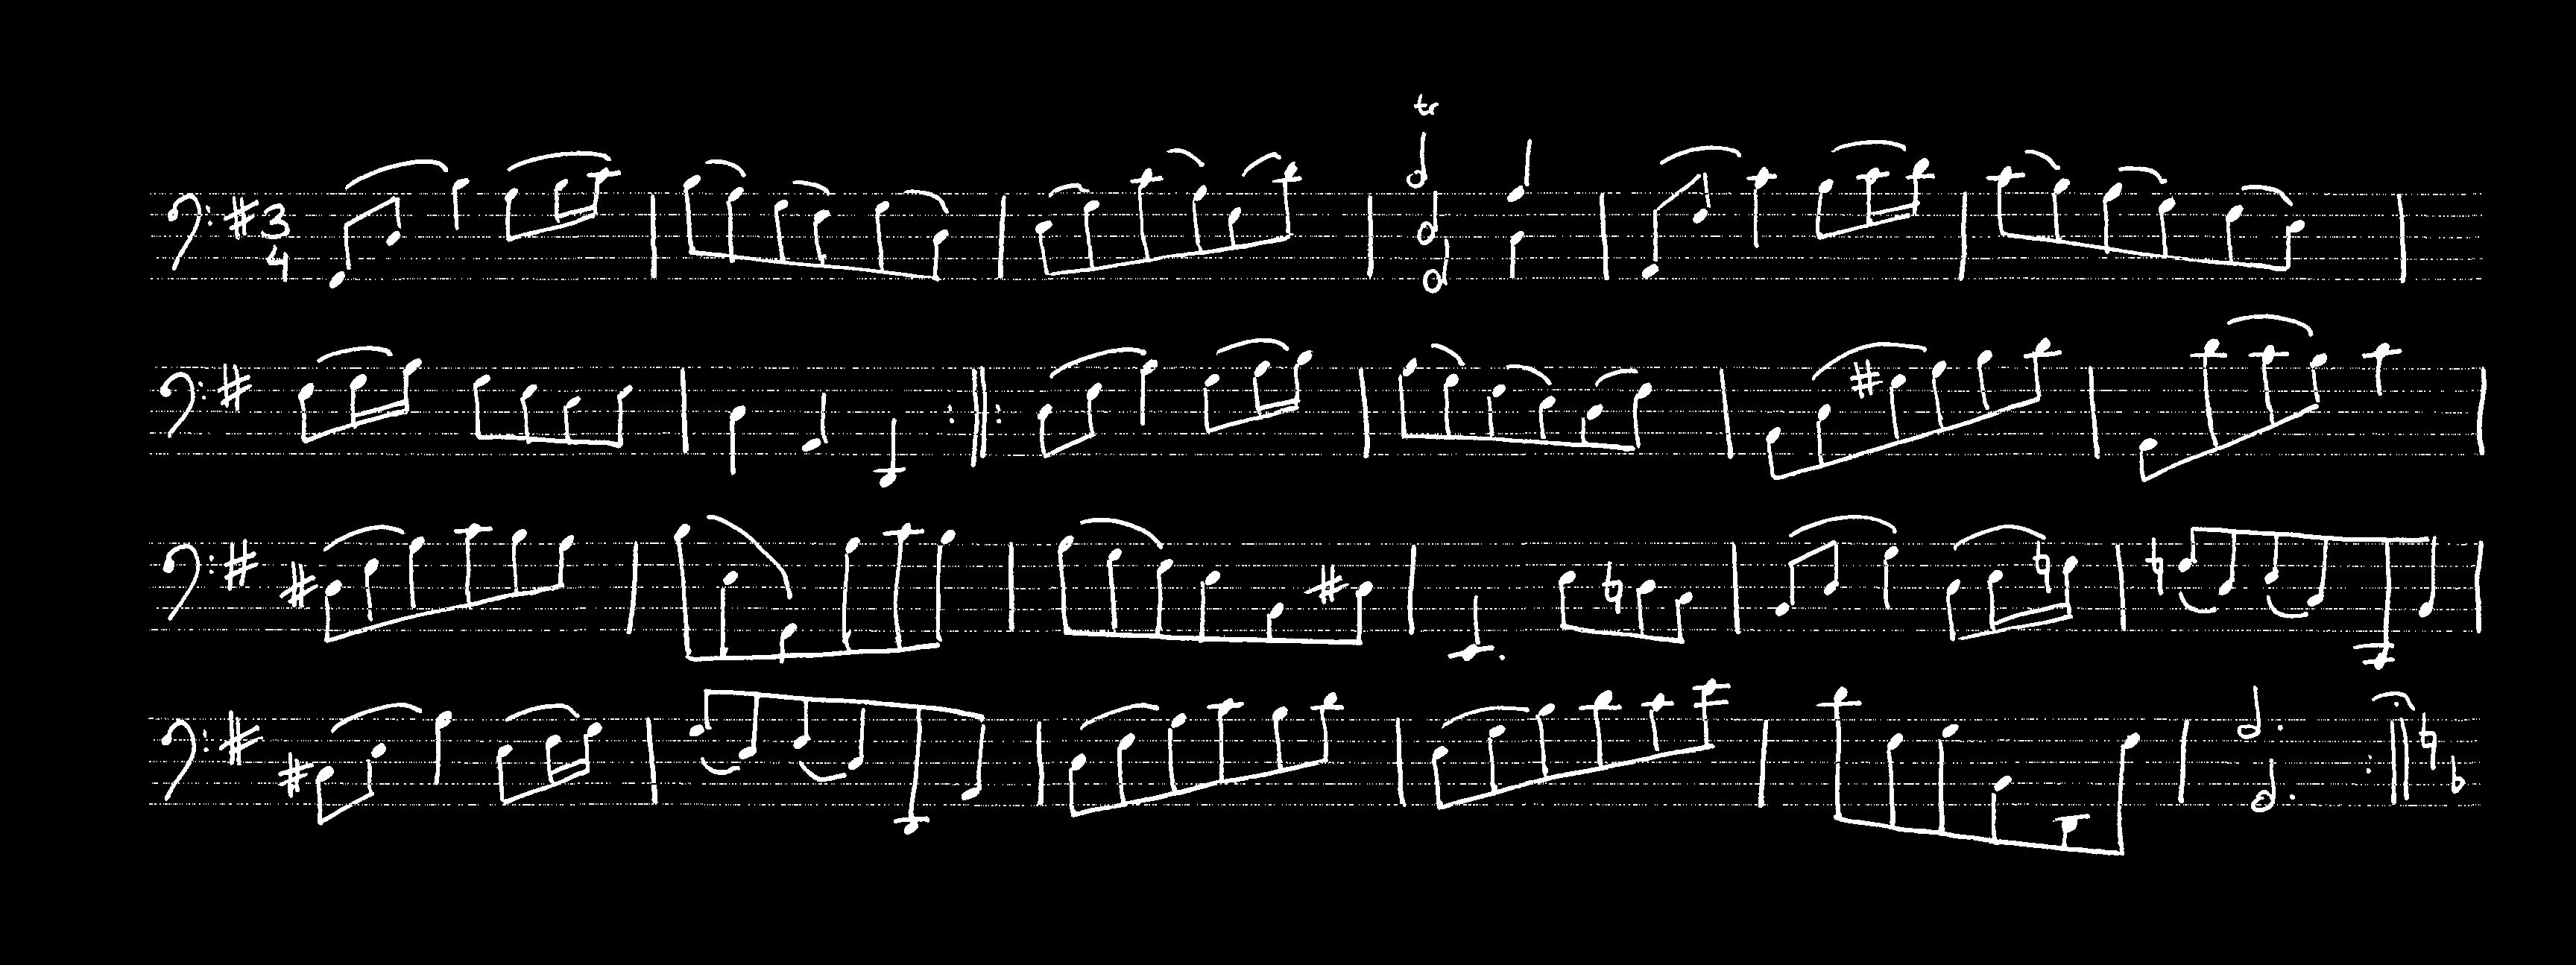 tr
3
4